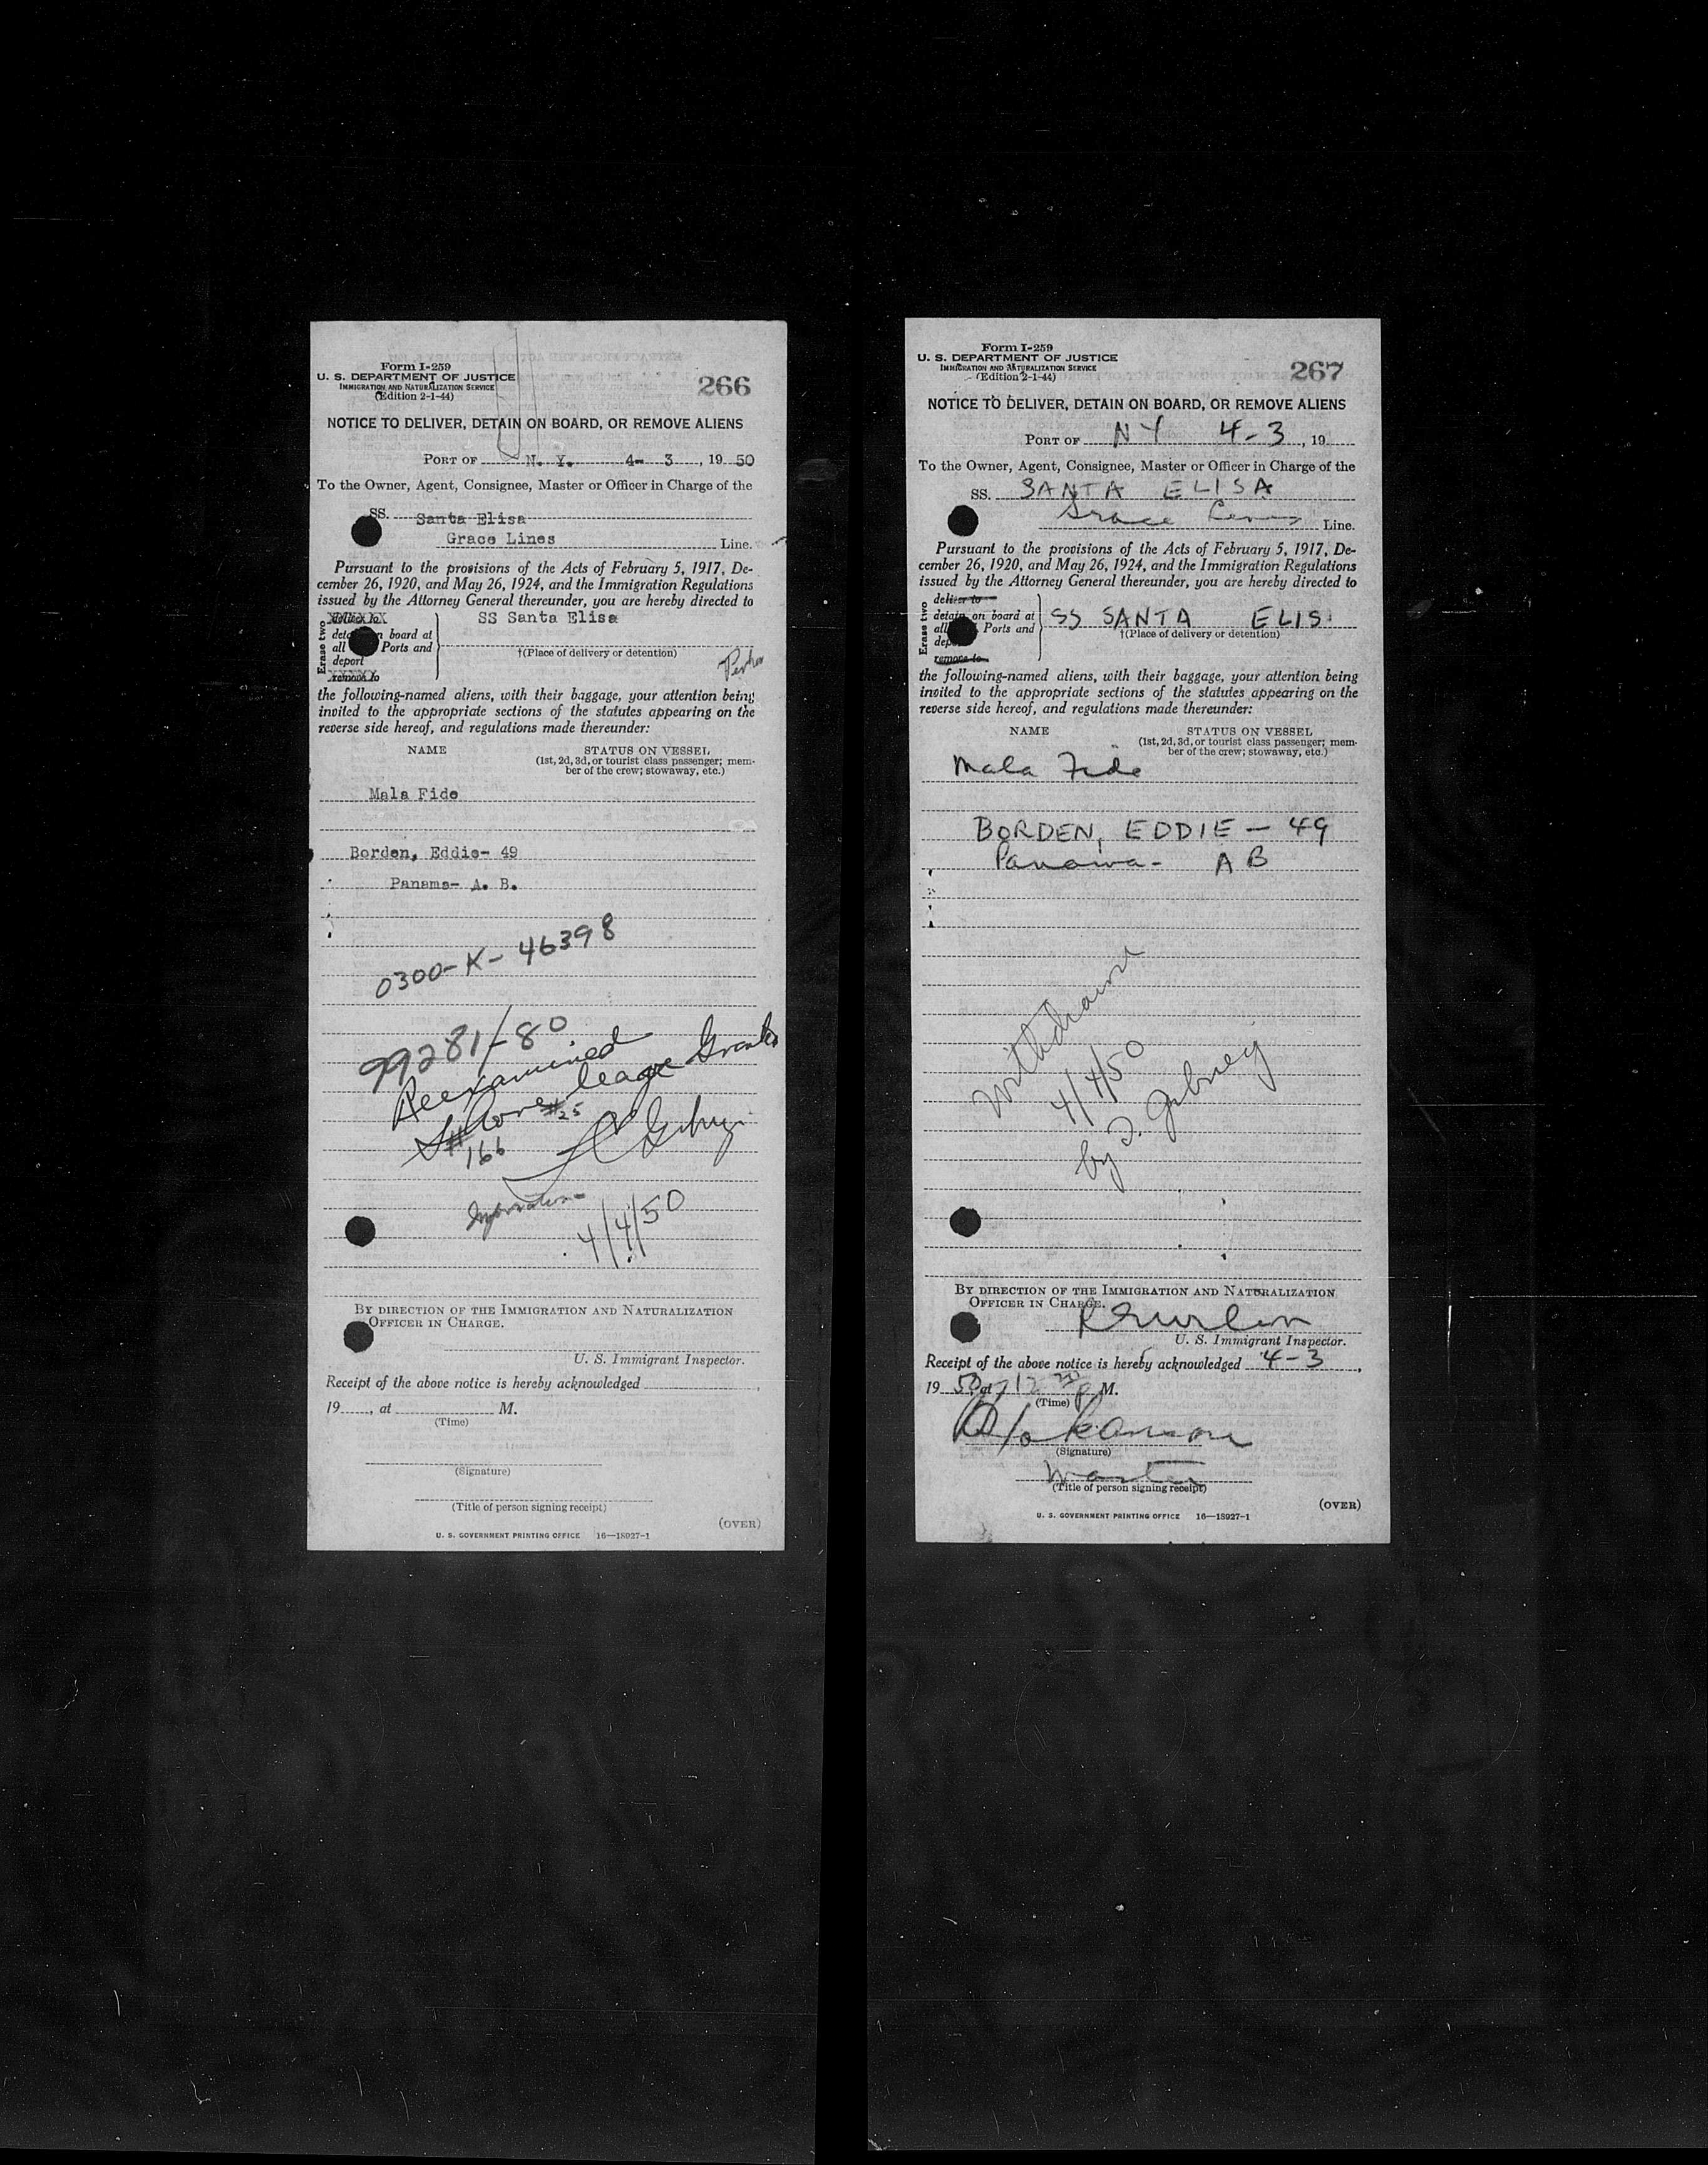 Form I-259
U. S. DEPARTMENT OF JUSTICE
IMMIGRATION AND NATURALIZATION SERVICE
(Edition 2-1-44)
266
NOTICE TO DELIVER, DETAIN ON BOARD, OR REMOVE ALIENS
PORT OF N. Y. 4- 3, 19 50
To the Owner, Agent, Consignee, Master or Officer in Charge of the
SS. Santa Elisa
Grace Lines Line.
Pursuant to the provisions of the Acts of February 5, 1917, De-
cember 26, 1920, and May 26, 1924, and the Immigration Regulations
issued by the Attorney General thereunder, you are hereby directed to
Erase two
deliver to
board at
all Ports and
deport
remove to
SS Santa Elisa
†(Place of delivery or detention)
the following-named aliens, with their baggage, your attention being
invited to the appropriate sections of the statutes appearing on the
reverse side hereof, and regulations made thereunder:
NAME STATUS ON VESSEL
(1st, 2d, 3d, or tourist class passenger; mem-
ber of the crew; stowaway, etc.)
Mala Fide
Borden, Eddie- 49
Panama- A. B.
0300-K- 46398
99281/-80
Reexamined
Shore leave Granted
#25
#166
4/4/50
BY DIRECTION OF THE IMMIGRATION AND NATURALIZATION
OFFICER IN CHARGE.
U. S. Immigrant Inspector.
Receipt of the above notice is hereby acknowledged ,
19 , at M.
(Time)
(Signature)
(Title of person signing receipt)
(OVER)
U. S. GOVERNMENT PRINTING OFFICE 16—18927-1
Form I-259
U. S. DEPARTMENT OF JUSTICE
IMMIGRATION AND NATURALIZATION SERVICE
(Edition 2-1-44)
267
NOTICE TO DELIVER, DETAIN ON BOARD, OR REMOVE ALIENS
PORT OF NY 4-3, 19
To the Owner, Agent, Consignee, Master or Officer in Charge of the
SS. SANTA ELISA
Grace Lines Line.
Pursuant to the provisions of the Acts of February 5, 1917, De-
cember 26, 1920, and May 26, 1924, and the Immigration Regulations
issued by the Attorney General thereunder, you are hereby directed to
Erase two
deliver to
detain on board at
all Ports and
remove to
SS SANTA ELIS
†(Place of delivery or detention)
the following-named aliens, with their baggage, your attention being
invited to the appropriate sections of the statutes appearing on the
reverse side hereof, and regulations made thereunder:
NAME STATUS ON VESSEL
(1st, 2d, 3d, or tourist class passenger; mem-
ber of the crew; stowaway, etc.)
Mala Fide
BORDEN, EDDIE - 49
Panama- AB
Withdrawn
4/4/50
by
BY DIRECTION OF THE IMMIGRATION AND NATURALIZATION
OFFICER IN CHARGE.
U. S. Immigrant Inspector.
Receipt of the above notice is hereby acknowledged 4-3,
19 50, at P M.
(Time)
(Signature)
Master
(Title of person signing receipt)
(OVER)
U. S. GOVERNMENT PRINTING OFFICE 16—18927-1